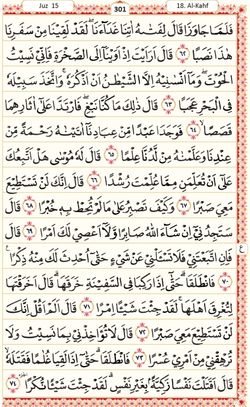 Juz 15 301 18. Al-Kahf
فَلَمَّا جَاوَزَا قَالَ لِفَتٰىهُ اٰتِنَا غَدَآءَنَا لَقَدْ لَقِيْنَا مِنْ سَفَرِنَا
هٰذَا نَصَبًا ٦٢ قَالَ اَرَءَيْتَ اِذْ اَوَيْنَآ اِلَى الصَّخْرَةِ فَاِنِّيْ نَسِيْتُ
الْحُوْتَ وَمَآ اَنْسٰىنِيْهُ اِلَّا الشَّيْطٰنُ اَنْ اَذْكُرَهٗ وَاتَّخَذَ سَبِيْلَهٗ
فِى الْبَحْرِ عَجَبًا ٦٣ قَالَ ذٰلِكَ مَا كُنَّا نَبْغِ فَارْتَدَّا عَلٰٓى اٰثَارِهِمَا
قَصَصًا ٦٤ فَوَجَدَا عَبْدًا مِّنْ عِبَادِنَآ اٰتَيْنٰهُ رَحْمَةً مِّنْ
عِنْدِنَا وَعَلَّمْنٰهُ مِنْ لَّدُنَّا عِلْمًا ٦٥ قَالَ لَهٗ مُوْسٰى هَلْ اَتَّبِعُكَ
عَلٰٓى اَنْ تُعَلِّمَنِ مِمَّا عُلِّمْتَ رُشْدًا ٦٦ قَالَ اِنَّكَ لَنْ تَسْتَطِيْعَ
مَعِيَ صَبْرًا ٦٧ وَكَيْفَ تَصْبِرُ عَلٰى مَا لَمْ تُحِطْ بِهٖ خُبْرًا ٦٨ قَالَ
سَتَجِدُنِيْٓ اِنْ شَآءَ اللّٰهُ صَابِرًا وَّلَآ اَعْصِيْ لَكَ اَمْرًا ٦٩ قَالَ
فَاِنِ اتَّبَعْتَنِيْ فَلَا تَسْـَٔلْنِيْ عَنْ شَيْءٍ حَتّٰٓى اُحْدِثَ لَكَ مِنْهُ ذِكْرًا ع
٧٠ فَانْطَلَقَا حَتّٰٓى اِذَا رَكِبَا فِى السَّفِيْنَةِ خَرَقَهَا قَالَ اَخَرَقْتَهَا
لِتُغْرِقَ اَهْلَهَا لَقَدْ جِئْتَ شَيْـًٔا اِمْرًا ٧١ قَالَ اَلَمْ اَقُلْ اِنَّكَ
لَنْ تَسْتَطِيْعَ مَعِيَ صَبْرًا ٧٢ قَالَ لَا تُؤَاخِذْنِيْ بِمَا نَسِيْتُ وَلَا
تُرْهِقْنِيْ مِنْ اَمْرِيْ عُسْرًا ٧٣ فَانْطَلَقَا حَتّٰٓى اِذَا لَقِيَا غُلٰمًا فَقَتَلَهٗ
قَالَ اَقَتَلْتَ نَفْسًا زَكِيَّةً بِغَيْرِ نَفْسٍ لَقَدْ جِئْتَ شَيْـًٔا نُّكْرًا ٧٤